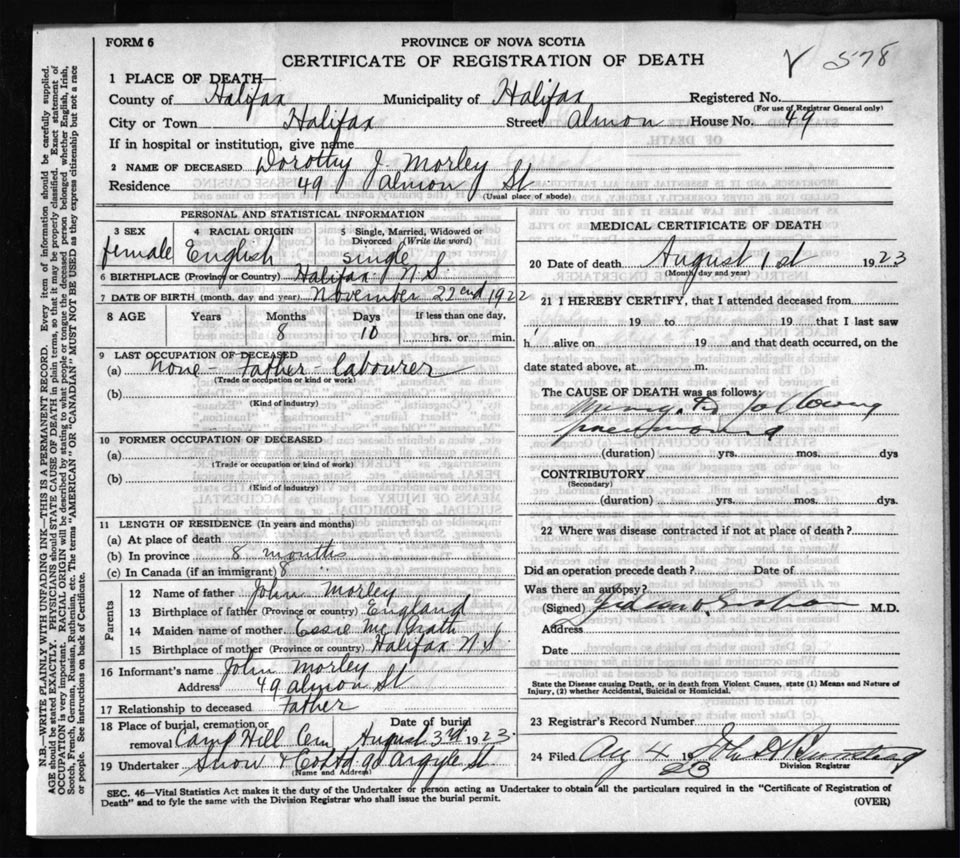 FORM 6
PROVINCE OF NOVA SCOTIA
CERTIFICATE OF REGISTRATION OF DEATH
V 578
1 PLACE OF DEATH—
County of Halifax Municipality of Halifax Registered No.
(For use of Registrar General only)
City or Town Halifax Street Almon House No. 49
If in hospital or institution, give name
2 NAME OF DECEASED Dorothy J. Morley
Residence 49 Almon St
(Usual place of abode)
PERSONAL AND STATISTICAL INFORMATION
3 SEX 4 RACIAL ORIGIN 5 Single, Married, Widowed or Divorced (Write the word)
female English single
6 BIRTHPLACE (Province or Country) Halifax N.S.
7 DATE OF BIRTH (month, day, and year) November 22nd 1922
8 AGE Years Months Days If less than one day,
8 10 hrs. or min.
9 LAST OCCUPATION OF DECEASED
(a) none - Father - labourer
(Trade or occupation or kind or work)
(b)
(Kind of industry)
10 FORMER OCCUPATION OF DECEASED
(a)
(Trade or occupation or kind of work)
(b)
(Kind of industry)
11 LENGTH OF RESIDENCE (In years and months)
(a) At place of death
(b) In province 8 months
(c) In Canada (if an immigrant) 8
Parents
12 Name of father John Morley
13 Birthplace of father (Province or country) England
14 Maiden name of mother Essie McGrath
15 Birthplace of mother (Province or country) Halifax N.S.
16 Informant's name John Morley
Address 49 Almon St
17 Relationship to deceased father
18 Place of burial, cremation or removal Camp Hill Cem Date of burial August 3rd 1923.
19 Undertaker Snow & Co 90 Argyle St.
(Name and Address)
MEDICAL CERTIFICATE OF DEATH
20 Date of death August 1st 1923
(Month, day and year)
21 I HEREBY CERTIFY, that I attended deceased from
19 to 19 that I last saw
h alive on 19 and that death occurred, on the
date stated above, at m.
The CAUSE OF DEATH was as follows:
following
pneumonia
(duration) yrs. mos. dys
CONTRIBUTORY
(Secondary)
(duration) yrs. mos. dys.
22 Where was disease contracted if not at place of death?
Did an operation precede death? Date of
Was there an autopsy?
(Signed) M.D.
Address
Date
State the Disease causing Death, or in death from Violent Causes, state (1) Means and Nature of
Injury, (2) whether Accidental, Suicidal or Homicidal.
23 Registrar's Record Number
24 Filed Aug 4 1923 John
Division Registrar
SEC. 46—Vital Statistics Act makes it the duty of the Undertaker or person acting as Undertaker to obtain all the particulars required in the "Certificate of Registration of
Death" and to fyle the same with the Division Registrar who shall issue the burial permit.
(OVER)
N.B.—WRITE PLAINLY WITH UNFADING INK—THIS IS A PERMANENT RECORD. Every item of information should be carefully supplied.
AGE should be stated EXACTLY. PHYSICIANS should STATE CAUSE OF DEATH in plain terms, so that it may be properly classified. Exact statement of
OCCUPATION is very important. RACIAL ORIGIN will be described by stating to what people or tongue the deceased person belonged whether English, Irish,
Scotch, French, German, Russian, Ruthenian, etc. The terms "AMERICAN" or "CANADIAN" MUST NOT BE USED as they express citizenship but not a race
or people. See instructions on back of Certificate.